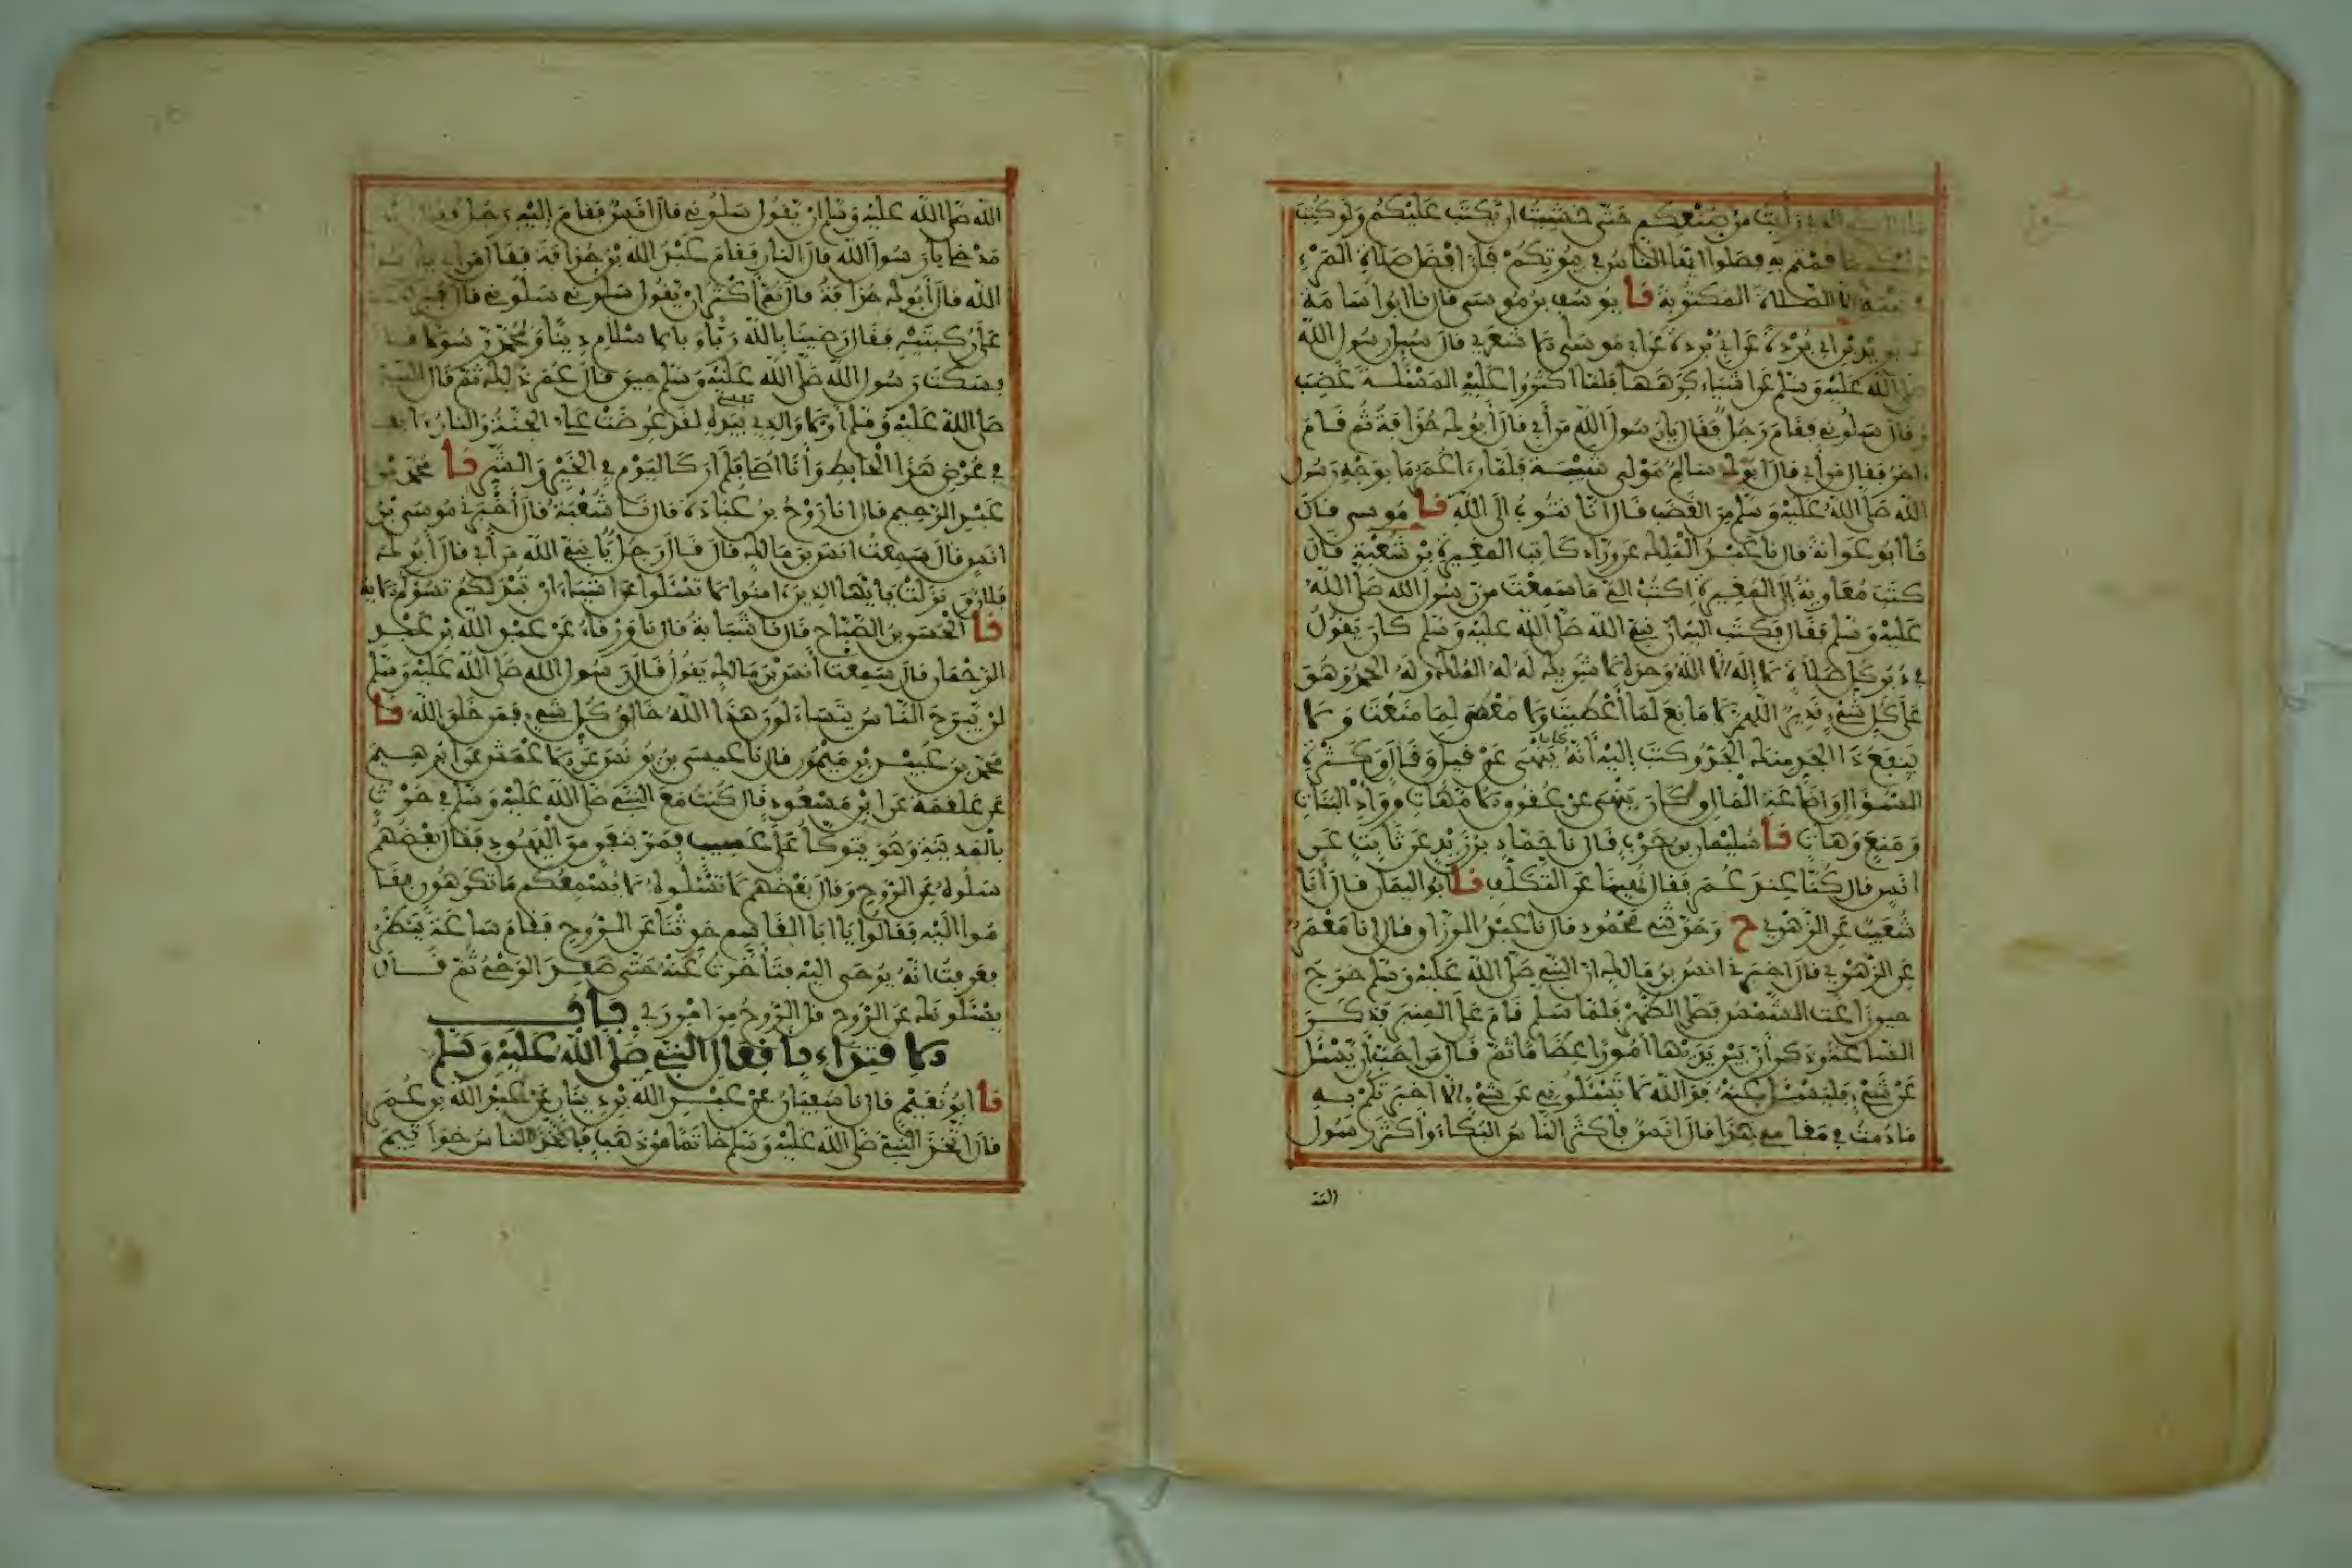 مازال بكم الذي رأيت من صنعكم حتى خشيت ان يكتب عليكم ولو كتب
عليكم ما قمتم به فصلوا ايها الناس في بيوتكم فإن افضل صلاة المرء
في بيته الا الصلاة المكتوبة نا يوسف بن موسى قال نا ابو اسامة
عن بريد بن ابي بردة عن ابي بردة عن ابي موسى الاشعري قال سيل رسول الله
صلى الله عليه وسلم عن اشياء كرهها فلما اكثروا عليه المسئلة غضب
وقال سلوني فقام رجل فقال يا رسول الله من أبي قال أبوك حذافة ثم قام
ءاخر فقال من أبي قال ابوك سالم مولى شيبة فلما رءا عمر ما بوجه رسول
الله صلى الله عليه وسلم من الغضب قال انا نتوب الى الله نا موسى قال
نا ابو عوانة قال نا عبد الملك عن وراد كاتب المغيرة بن شعبة قال
كتب معاوية إلى المغيرة اكتب الي ما سمعت من رسول الله صلى الله
عليه وسلم فقال فكتب اليه ان نبي الله صلى الله عليه وسلم كان يقول
في دبر كل صلاة لا إله الا الله وحده لا شريك له له الملك وله الحمد وهو
على كل شيء قدير اللهم لا مانع لما أعطيت ولا معطي لما منعت ولا
ينفع ذا الجد منك الجد وكتب إليه انه كان ينهى عن قيل وقال وكثرة
السؤال واضاعة المال وكان ينهى عن عقوق الامهات ووأد البنات
ومنع وهات نا سليمان بن حرب قال نا حماد بن زيد عن ثابت عن
انس قال كنا عند عمر فقال نهينا عن التكلف نا ابو اليمان قال أنا
شعيب عن الزهري ح وحدثني محمود قال نا عبد الرزاق قال انا معمر
عن الزهري قال اخبرني انس بن مالك ان النبي صلى الله عليه وسلم خرج
حين زاغت الشمس فصلى الظهر فلما سلم قام على المنبر فذكر
الساعة وذكر أن بين يديها أمورا عظاما ثم قال من احب أن يسئل
عن شيء فليسئل عنه فوالله لا تسئلوني عن شيء الا اخبرتكم به
ما دمت في مقامي هذا قال انس فاكثر الناس البكاء وأكثر رسول
الله
الله صلى الله عليه وسلم ان يقول سلوني قال انس فقام اليه رجل فقال
مدخلي يا رسول الله قال النار فقام عبد الله بن حذافة فقال من ابي يا رسول
الله قال أبوك حذافة قال ثم أكثر ان يقول سلوني سلوني قال فبرك
على ركبتيه فقال رضينا بالله ربا وبالاسلام دينا وبمحمد رسولا
فسكت رسول الله صلى الله عليه وسلم حين قال عمر ذلك ثم قال النبي
صلى الله عليه وسلم أولا والذي نفسي بيده لقد عرضت علي الجنة والنار ءانفا
في عرض هذا الحايط وأنا اصلي فلم أر كاليوم في الخير والشر نا محمد بن
عبد الرحيم قال انا روح بن عبادة قال نا شعبة قال أخبرني موسى بن
انس قال سمعت انس بن مالك قال قال رجل يا نبي الله من أبي قال أبوك
فلان ونزلت يايها الذين ءامنوا لا تسئلوا عن اشياء ان تبد لكم تسؤكم الاية
نا الحسن بن الصباح قال نا شبابة قال نا ورقاء عن عبد الله بن عبد
الرحمان قال سمعت أنس بن مالك يقول قال رسول الله صلى الله عليه وسلم
لن يبرح الناس يتساءلون هذا الله خالق كل شيء فمن خلق الله نا
محمد بن عبيد بن ميمون قال نا عيسى بن يونس عن الاعمش عن ابرهيم
عن علقمة عن ابن مسعود قال كنت مع النبي صلى الله عليه وسلم في حرث
بالمدينة وهو يتوكأ على عسيب فمر بنفر من اليهود فقال بعضهم
سلوه عن الروح وقال بعضهم لا تسئلوه لا يسمعكم ما تكرهون فقا
موا اليه فقالوا يا ابا القاسم حدثنا عن الروح فقام ساعة ينظر
فعرفت انه يوحى اليه فتأخرت عنه حتى صعد الوحي ثم قال
يسئلونك عن الروح قل الروح من امر ربي باب
الاقتداء بافعال النبي صلى الله عليه وسلم
نا ابو نعيم قال نا سفيان عن عبد الله بن دينار عن عبد الله بن عمر
قال اتخذ النبي صلى الله عليه وسلم خاتما من ذهب فاتخذ الناس خواتيم